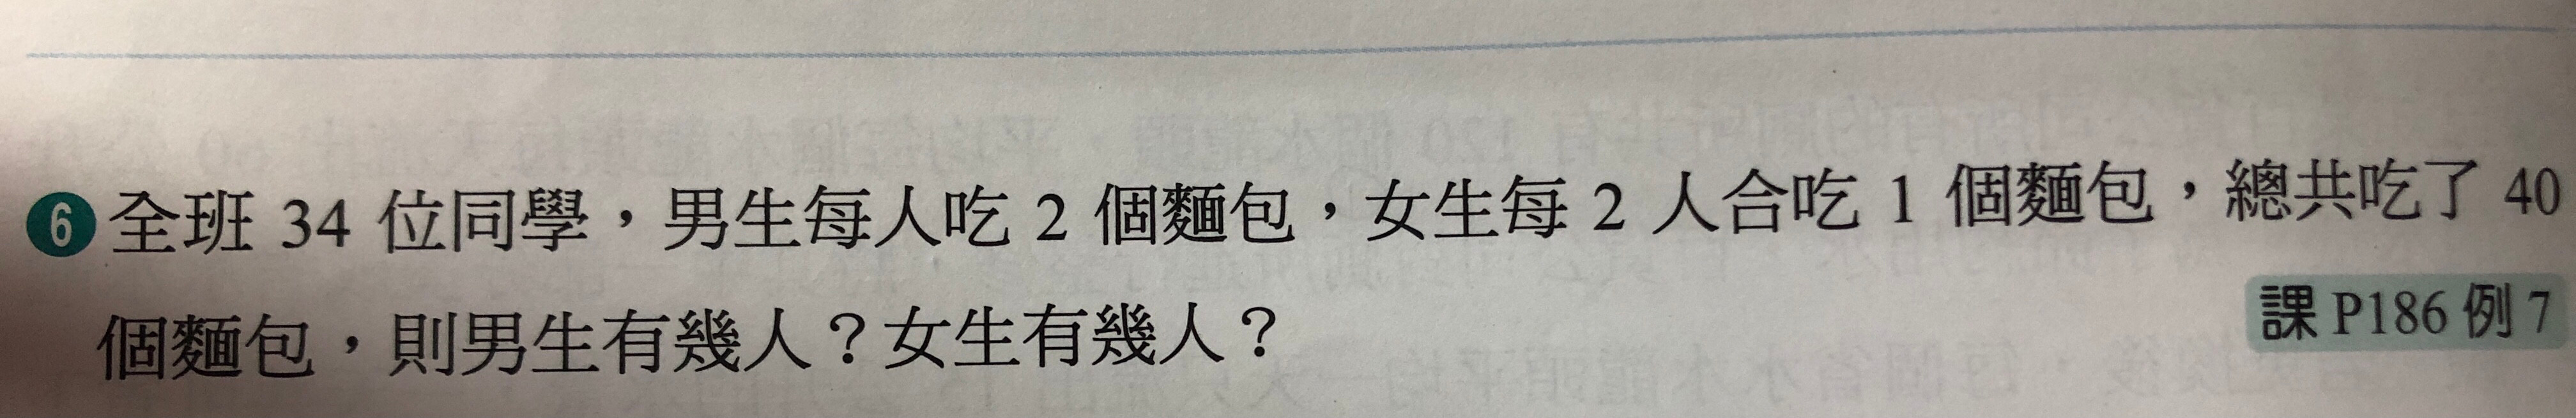 6 全班 34 位同學，男生每人吃 2 個麵包，女生每 2 人合吃 1 個麵包，總共吃了 40
個麵包，則男生有幾人？女生有幾人？
課 P186 例 7